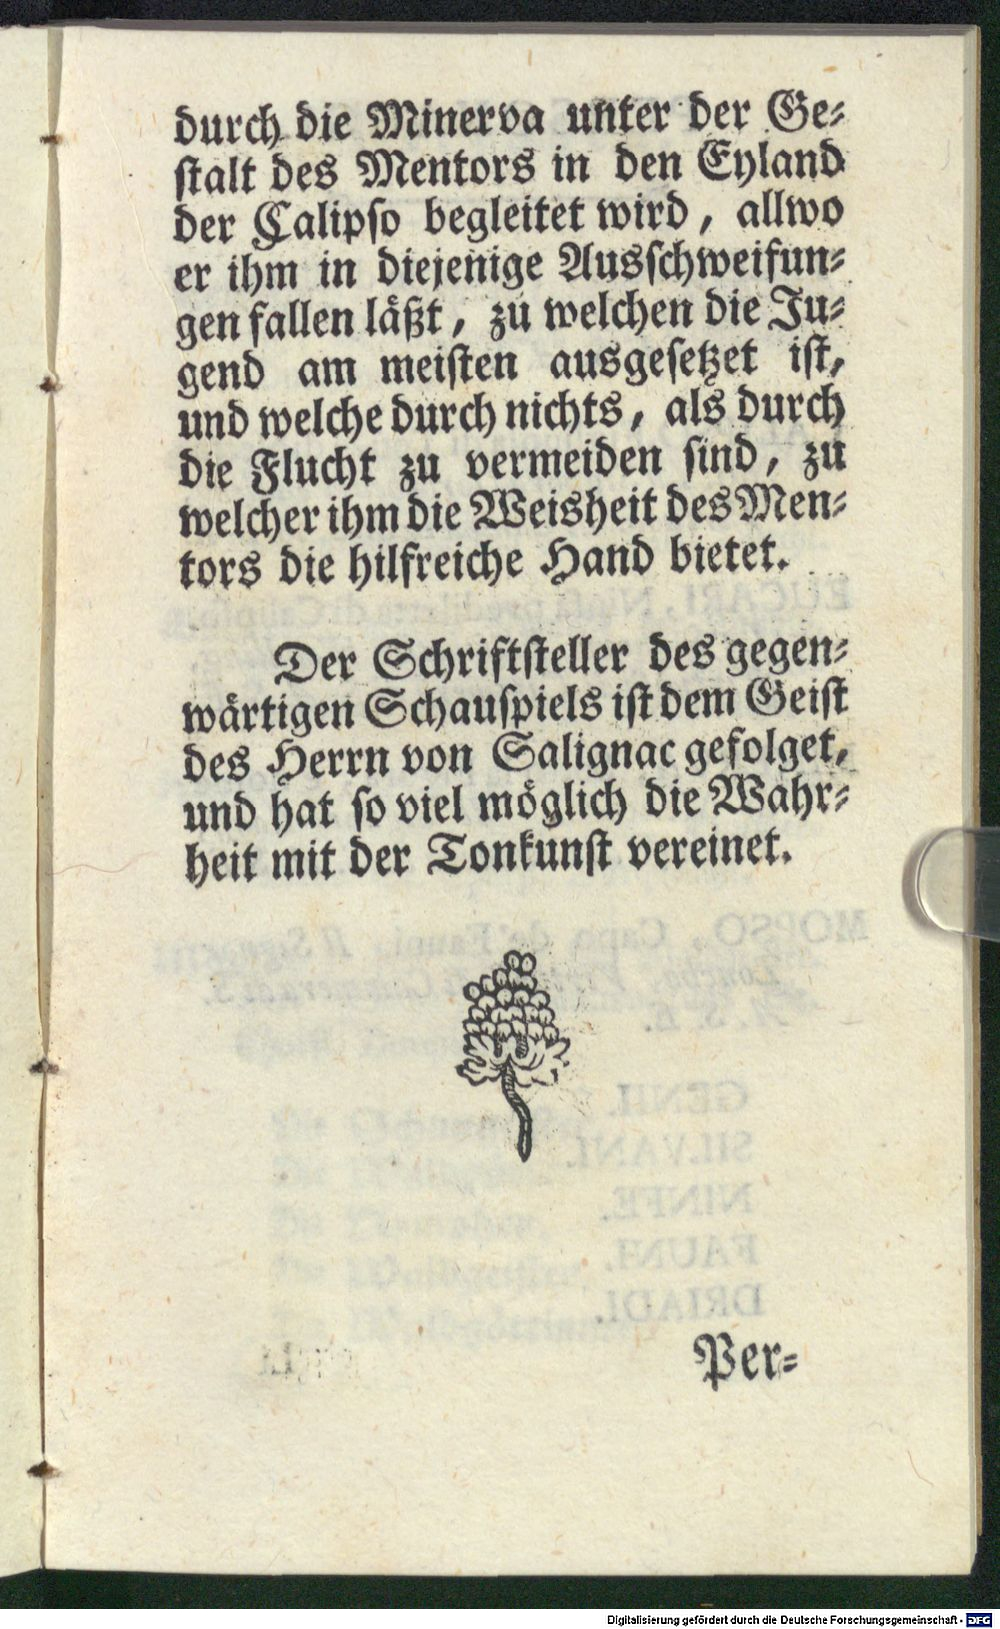 durch die Minerva unter der Ge-
stalt des Mentors in den Eyland
der Calipso begleitet wird, allwo
er ihm in diejenige Ausschweifun-
gen fallen läßt, zu welchen die Ju-
gend am meisten ausgesetzet ist,
und welche durch nichts, als durch
die Flucht zu vermeiden sind, zu
welcher ihm die Weisheit des Men-
tors die hilfreiche Hand bietet.
Der Schriftsteller des gegen-
wärtigen Schauspiels ist dem Geist
des Herrn von Salignac gefolget,
und hat so viel möglich die Wahr-
heit mit der Tonkunst vereinet.
Per-
Digitalisierung gefördert durch die Deutsche Forschungsgemeinschaft - DFG